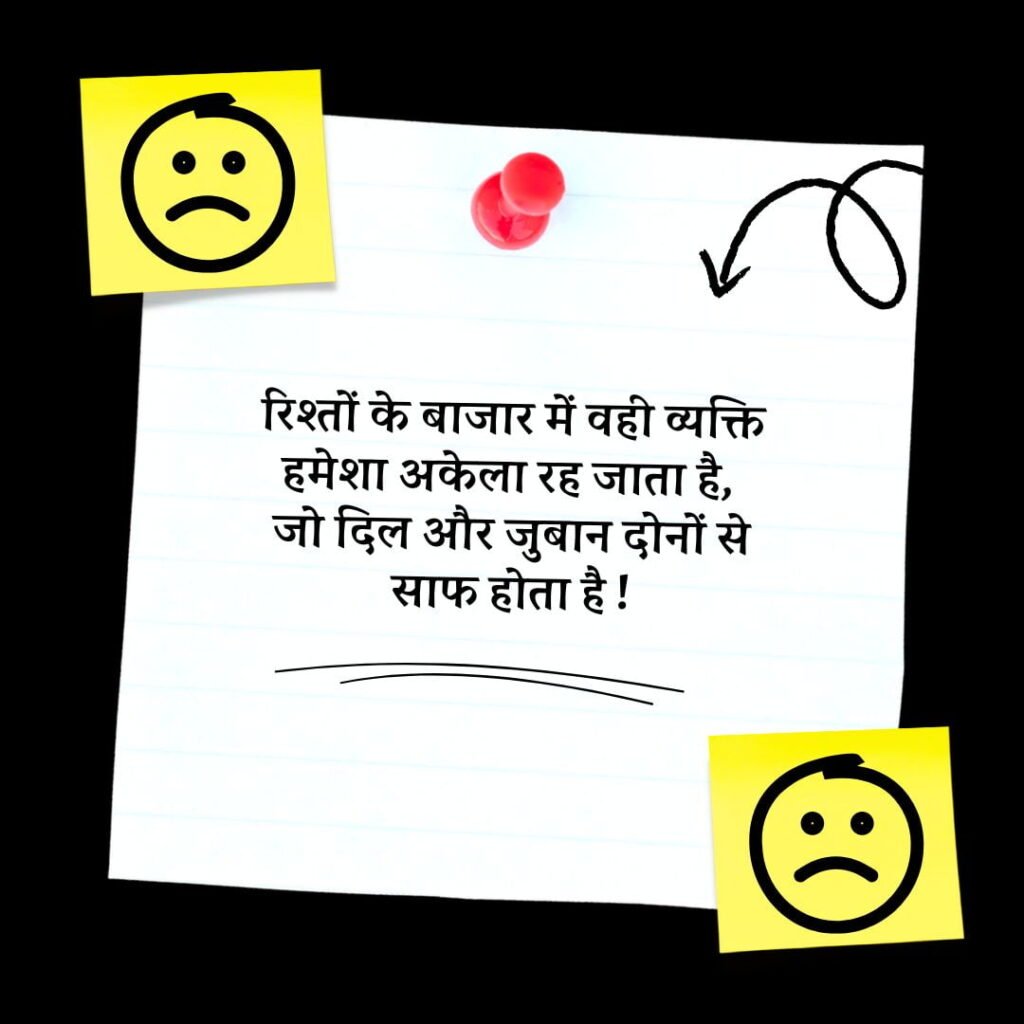 रिश्तों के बाजार में वही व्यक्ति
हमेशा अकेला रह जाता है,
जो दिल और जुबान दोनों से
साफ होता है !